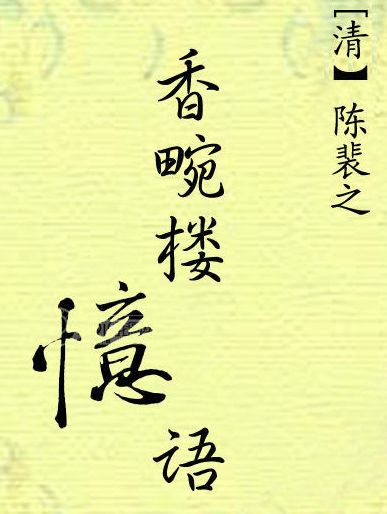 [清】陈裴之
香畹楼憶语